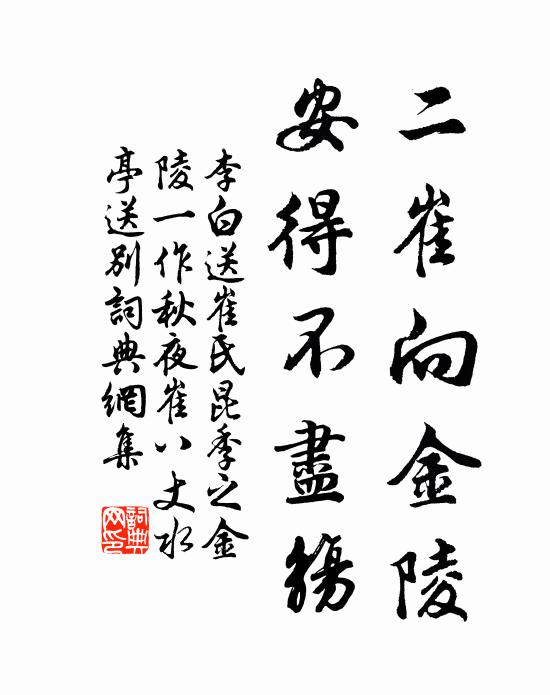 二崔向金陵
安得不盡觴
李白送崔氏昆季之金
陵一作秋夜崔八丈水
亭送別詞典網集
詞典
网印